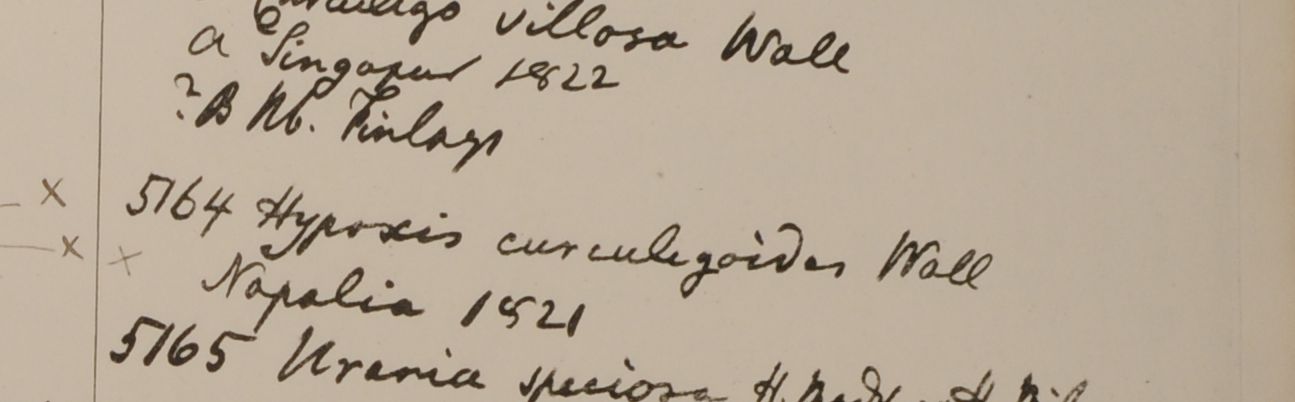 Curculigo villosa Wall
a Singapur 1822
? B Hb. Finlays
5164 Hypoxis curculigoides Wall
Napalia 1821
5165 Urania speciosa H.